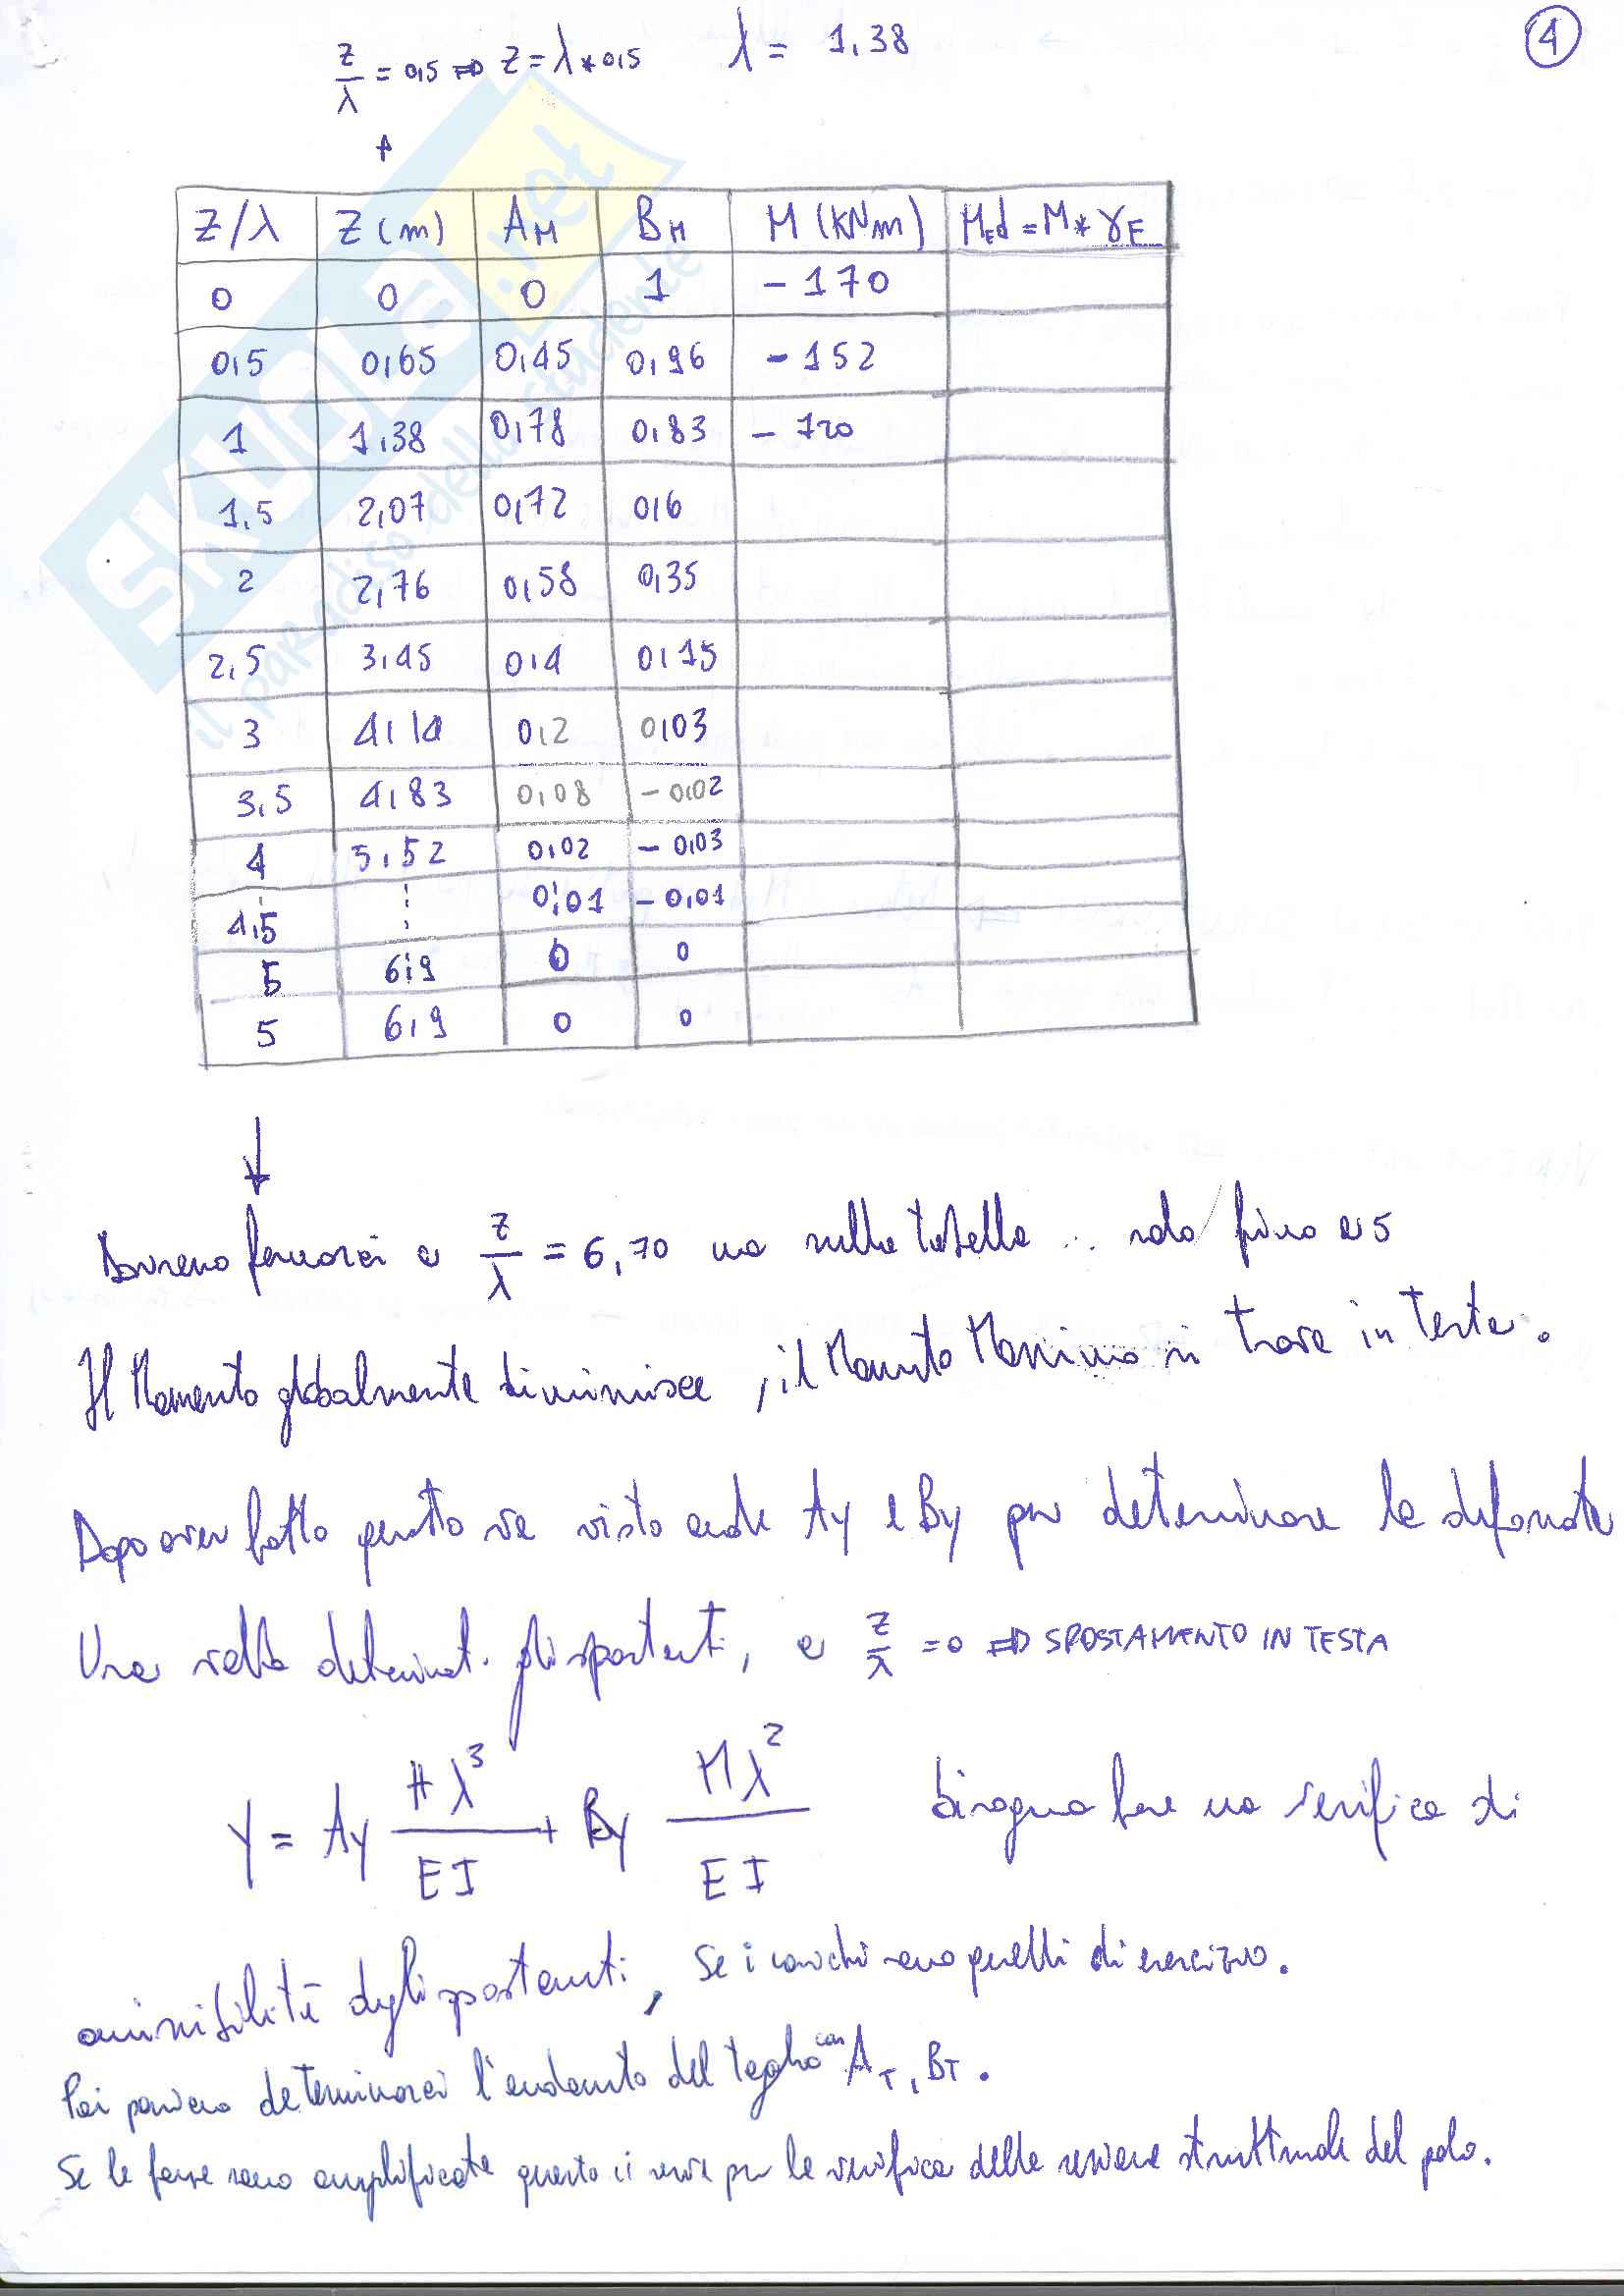 4
z/λ = 0,5 => z = λ * 0,5 λ = 1,38
Z/λ Z (m) A_M B_M M (kNm) M_Ed = M * γ_E
0 0 0 1 - 170
0,5 0,65 0,45 0,96 - 152
1 1,38 0,78 0,83 - 120
1,5 2,07 0,72 0,6
2 2,76 0,58 0,35
2,5 3,45 0,4 0,15
3 4,14 0,2 0,03
3,5 4,83 0,08 - 0,02
4 5,52 0,02 - 0,03
4,5 ⋮ 0,01 - 0,01
5 6,9 0 0
5 6,9 0 0
↓
Dovremo fermarci a z/λ = 6,70 ma nella tabella ... solo fino a 5
Il Momento globalmente diminuisce, il Momento Massimo si trova in testa.
Dopo aver fatto questo va visto anche Ay e By per determinare la deformata
Una volta determinati gli spostamenti, a z/λ = 0 => SPOSTAMENTO IN TESTA
Y = Ay Hλ³/EI + By Mλ²/EI bisogna fare una verifica di
ammissibilità degli spostamenti, se i carichi sono quelli di esercizio.
Poi possiamo determinarci l'andamento del taglio con A_T, B_T.
Se le forze sono amplificate questo ci serve per la verifica della sezione strutturale del palo.
SKUOLA.net
il paradiso dello studente